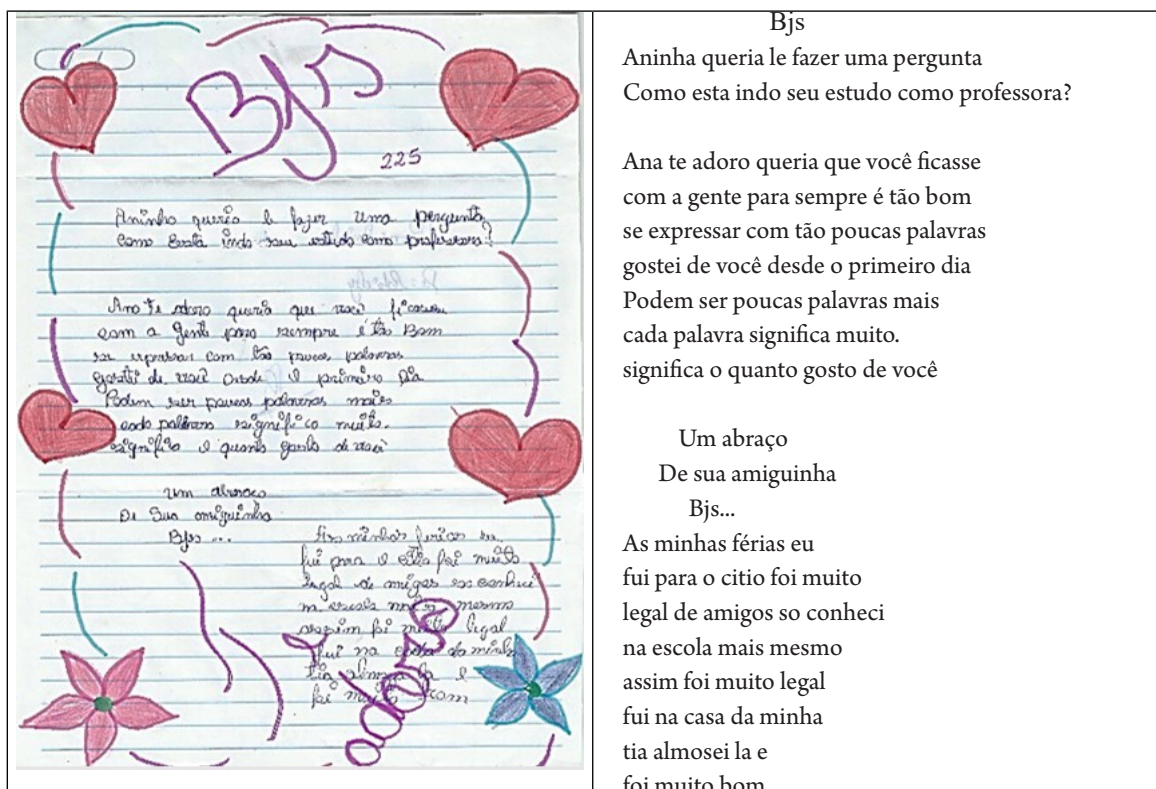 Bjs
225
Aninha queria le fazer uma pergunta
como está indo seu estudo como professora?
Ana te adoro queria que você ficasse
com a gente para sempre é tão Bom
se expressar com tão poucas palavras
gostei de você desde o primeiro Dia
Podem ser poucas palavras mais
cada palavra significa muito.
significa o quanto gosto de você
Um abraço
De Sua amiguinha
Bjs...
As minhas férias eu
fui para o citio foi muito
legal de amigos so conheci
na escola mais mesmo
assim foi muito legal
fui na casa da minha
tia almosei la e
foi muito bom
adoro
Bjs
Aninha queria le fazer uma pergunta
Como esta indo seu estudo como professora?
Ana te adoro queria que você ficasse
com a gente para sempre é tão bom
se expressar com tão poucas palavras
gostei de você desde o primeiro dia
Podem ser poucas palavras mais
cada palavra significa muito.
significa o quanto gosto de você
Um abraço
De sua amiguinha
Bjs...
As minhas férias eu
fui para o citio foi muito
legal de amigos so conheci
na escola mais mesmo
assim foi muito legal
fui na casa da minha
tia almosei la e
foi muito bom